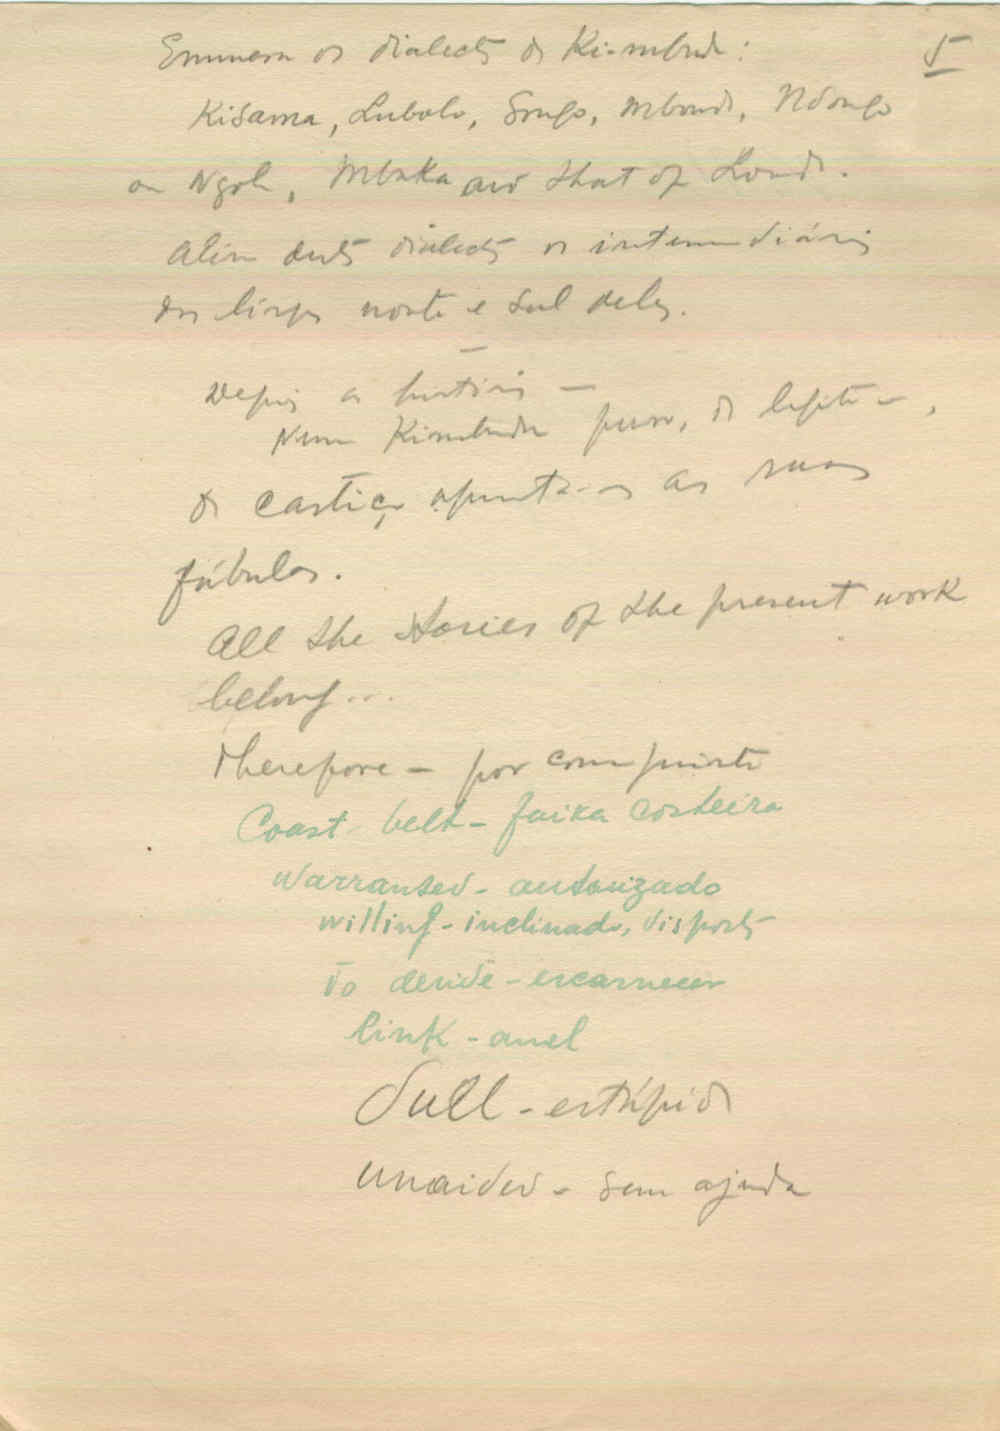 5
Enumera os dialectos de Ki-mbundu:
Kisama, Lubolo, Songo, Mbondo, Ndongo
or Ngola, Mbaka and that of Loanda.
Além destes dialectos os intermediários
das línguas norte e sul deles.
Depois a história —
Num Kimbundu puro, de
de castiço as suas
fábulas.
All the stories of the present work
belong...
Therefore – por conseguinte
Coast belt – faixa costeira
Warranted – autorizado
willing – inclinado, disposto
To deride – escarnecer
link – anel
Dull – estúpido
Unaided – sem ajuda